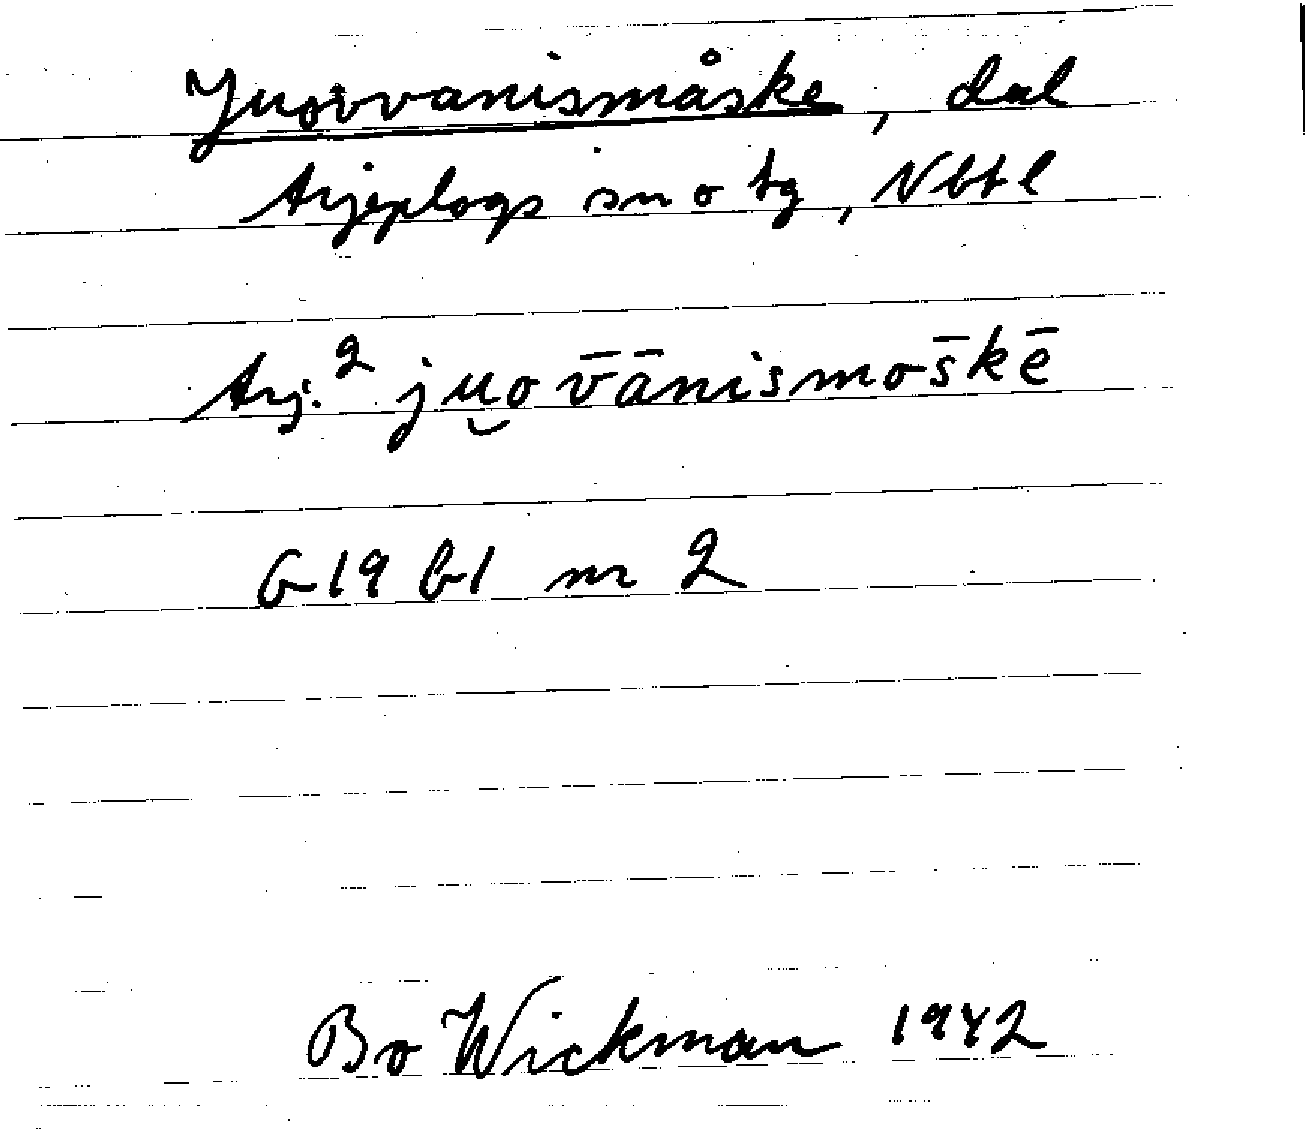 Juovvanismåske, dal
Arjeplogs sn o tg, Nbtl
Arj.² ju̯ov̄ānismos̄kē
G19 bl nr 2
Bo Wickman 1942